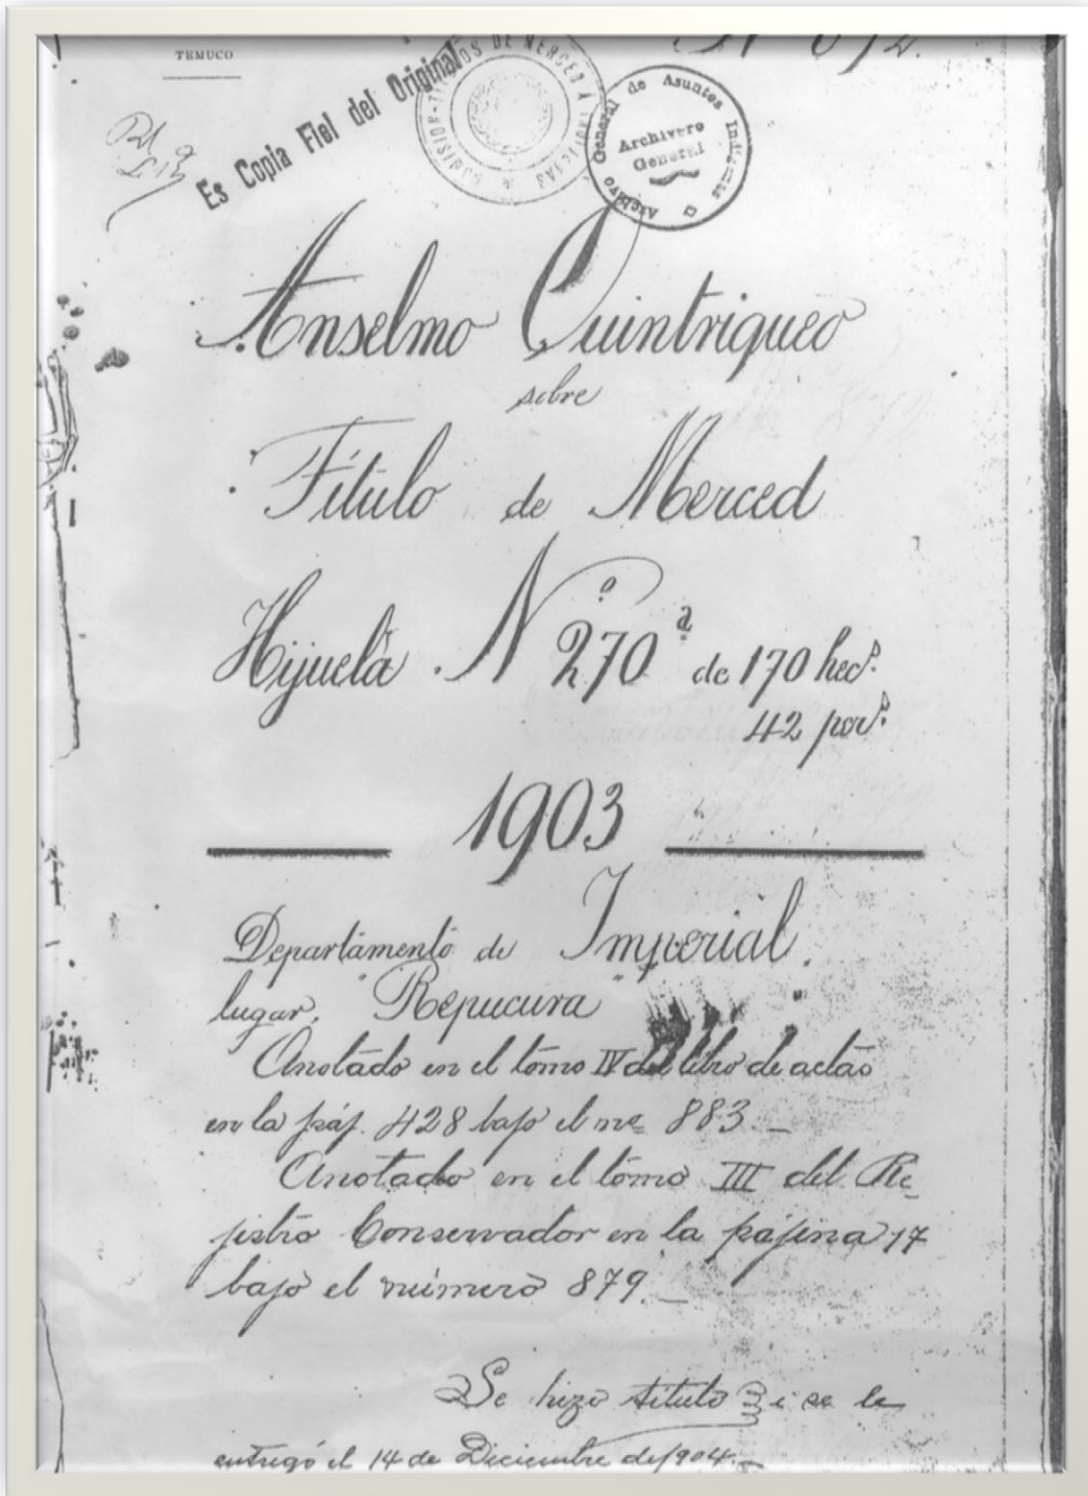 TEMUCO
Nº 872.
Es Copia Fiel del Original
DIVISION-TITULOS DE MERCED A INDIJENAS
Archivo General de Asuntos Indígenas
Archivero
General
Anselmo Quintriqueo
sobre
Título de Merced
Hijuela Nº 270ª de 170 hecs.
42 por.
1903
Departamento de Imperial.
lugar. "Repucura"
Anotado en el tomo IV del libro de actas
en la páj. 428 bajo el no 883.—
Anotado en el tomo III del Re-
jistro Conservador en la pájina 17
bajo el número 879.—
Se hizo título i se le
entregó el 14 de Diciembre de 1904.—